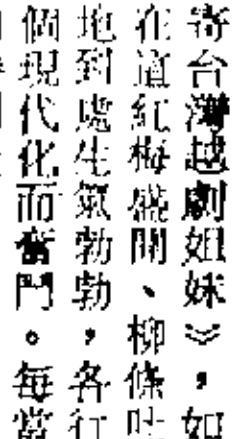 寄台灣越劇姐妹》，如
在這紅梅盛開、柳條吐
地到處生氣勃勃，各行
個現代化而奮鬥。每當